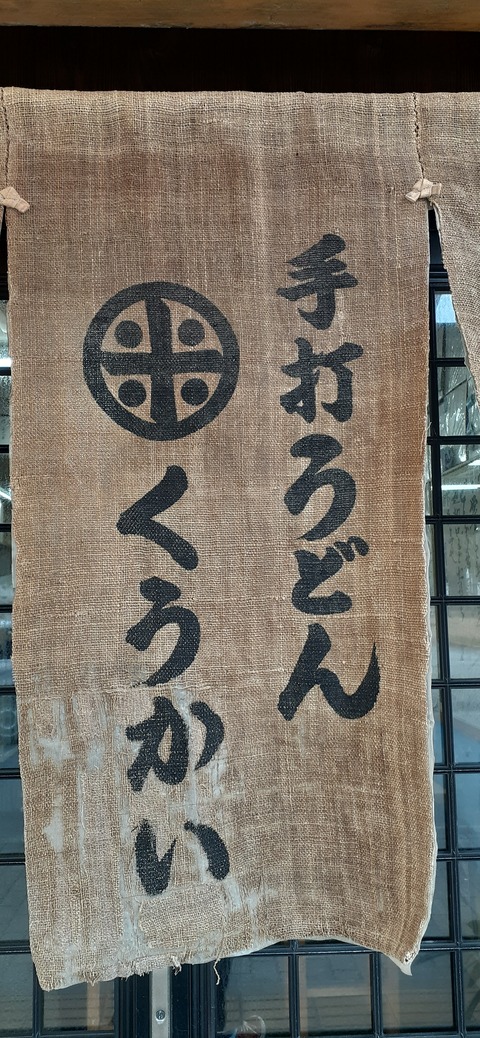 手打うどん
くうかい